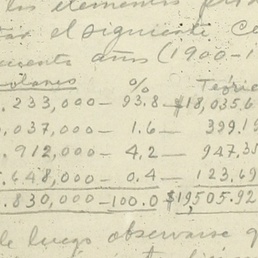 los elementos
el siguiente
años (1900-1
Dolares % Teóric
.233,000 — 93.8 — $18,035.6
.037,000 — 1.6 — 399.19
.912,000 — 4.2 — 947,35
.648,000 — 0.4 — 123,69
.830,000 — 100.0 $19,505.92
luego observarse q